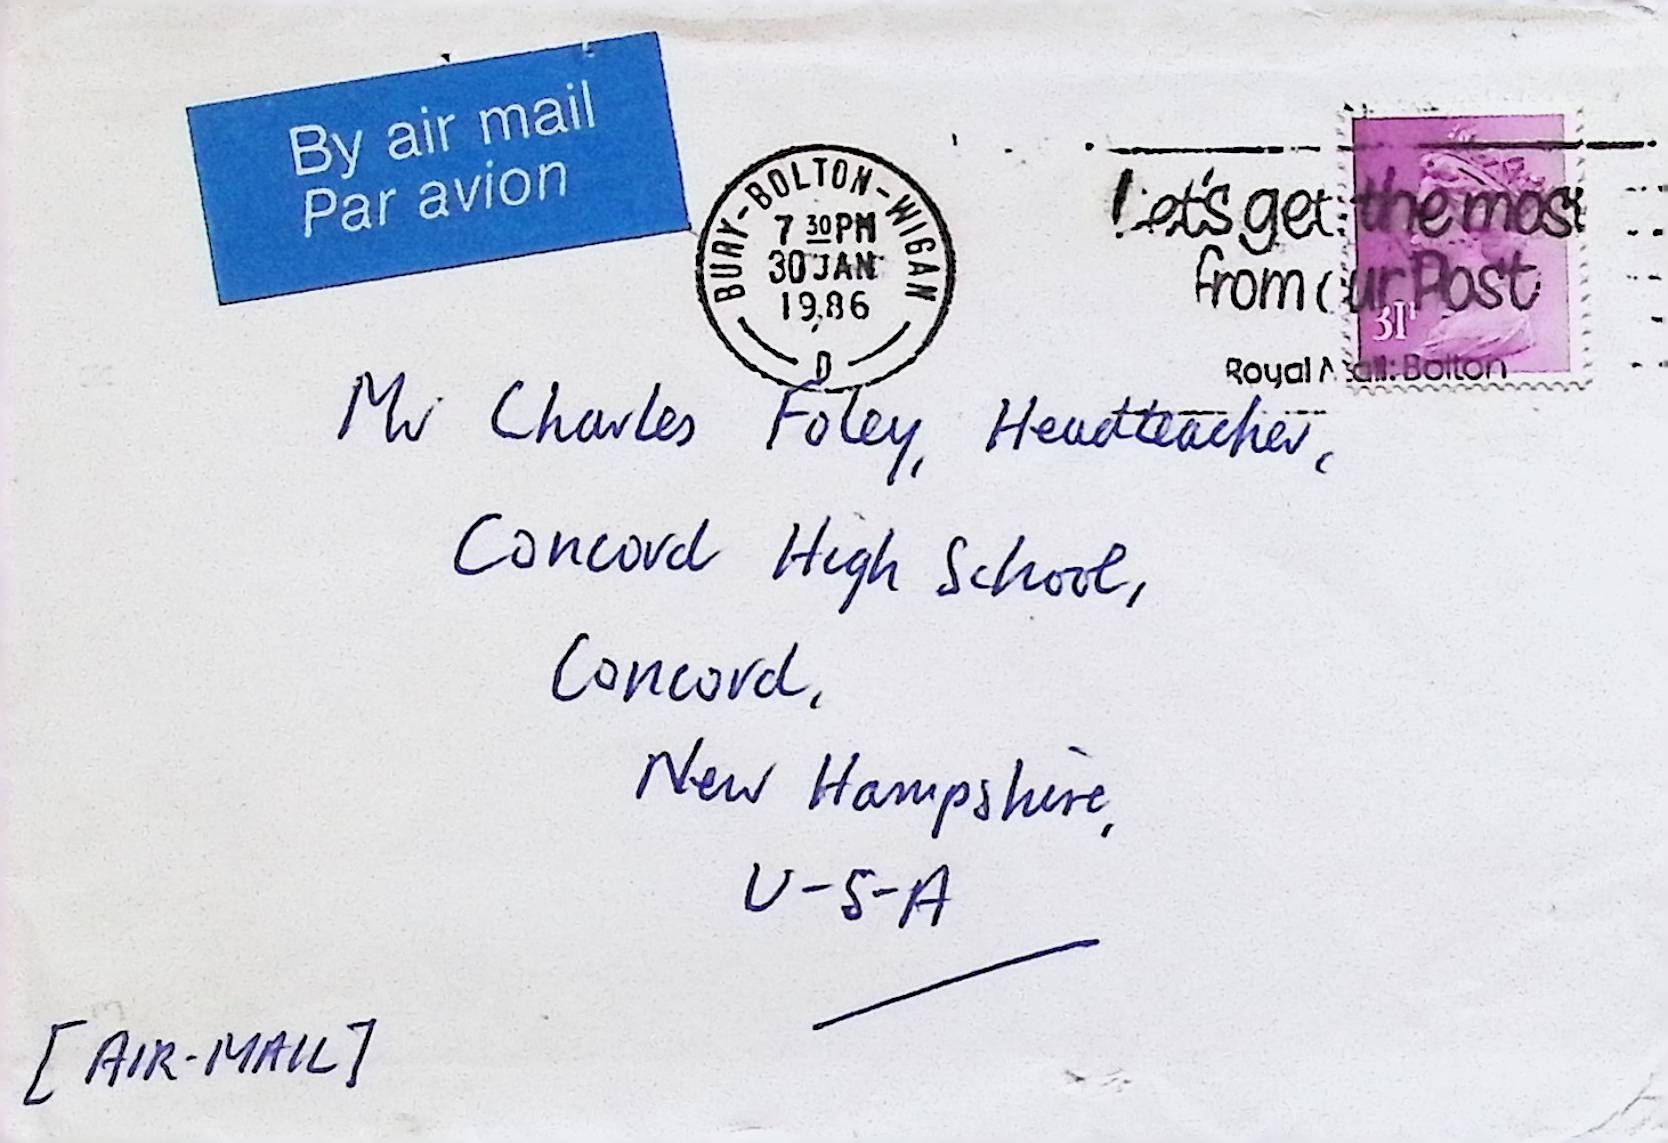 By air mail
Par avion
BURY-BOLTON-WIGAN
7 30PM
30 JAN
1986
D
Let's get the most
from our Post
31P
Royal Mail: Bolton
Mr Charles Foley, Headteacher,
Concord High School,
Concord,
New Hampshire,
U-S-A
[AIR-MAIL]